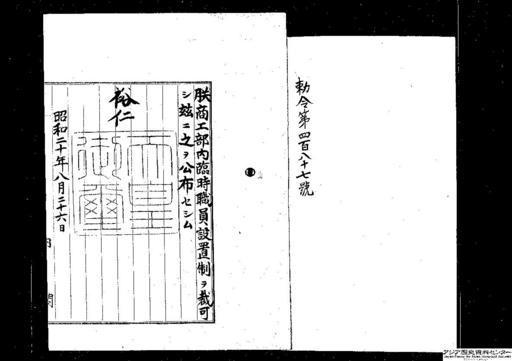 勅令第四百八十七號
朕商工部內臨時職員設置制ヲ裁可
シ玆ニ之ヲ公布セシム
裕仁
天皇御璽
昭和二十年八月二十六日
內閣
アジア歴史資料センター